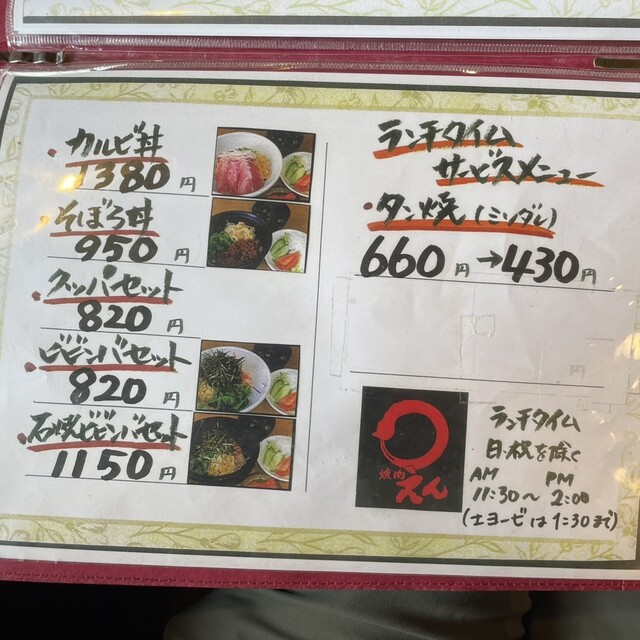 カルビ丼
1380円
そぼろ丼
950円
クッパセット
820円
ビビンバセット
820円
石焼ビビンバセット
1150円
ランチタイム
サービスメニュー
タン焼(ミソダレ)
660円→430円
円
焼肉
えん
ランチタイム
日・祝を除く
AM PM
11:30～2:00
(土ヨービは1:30まで)